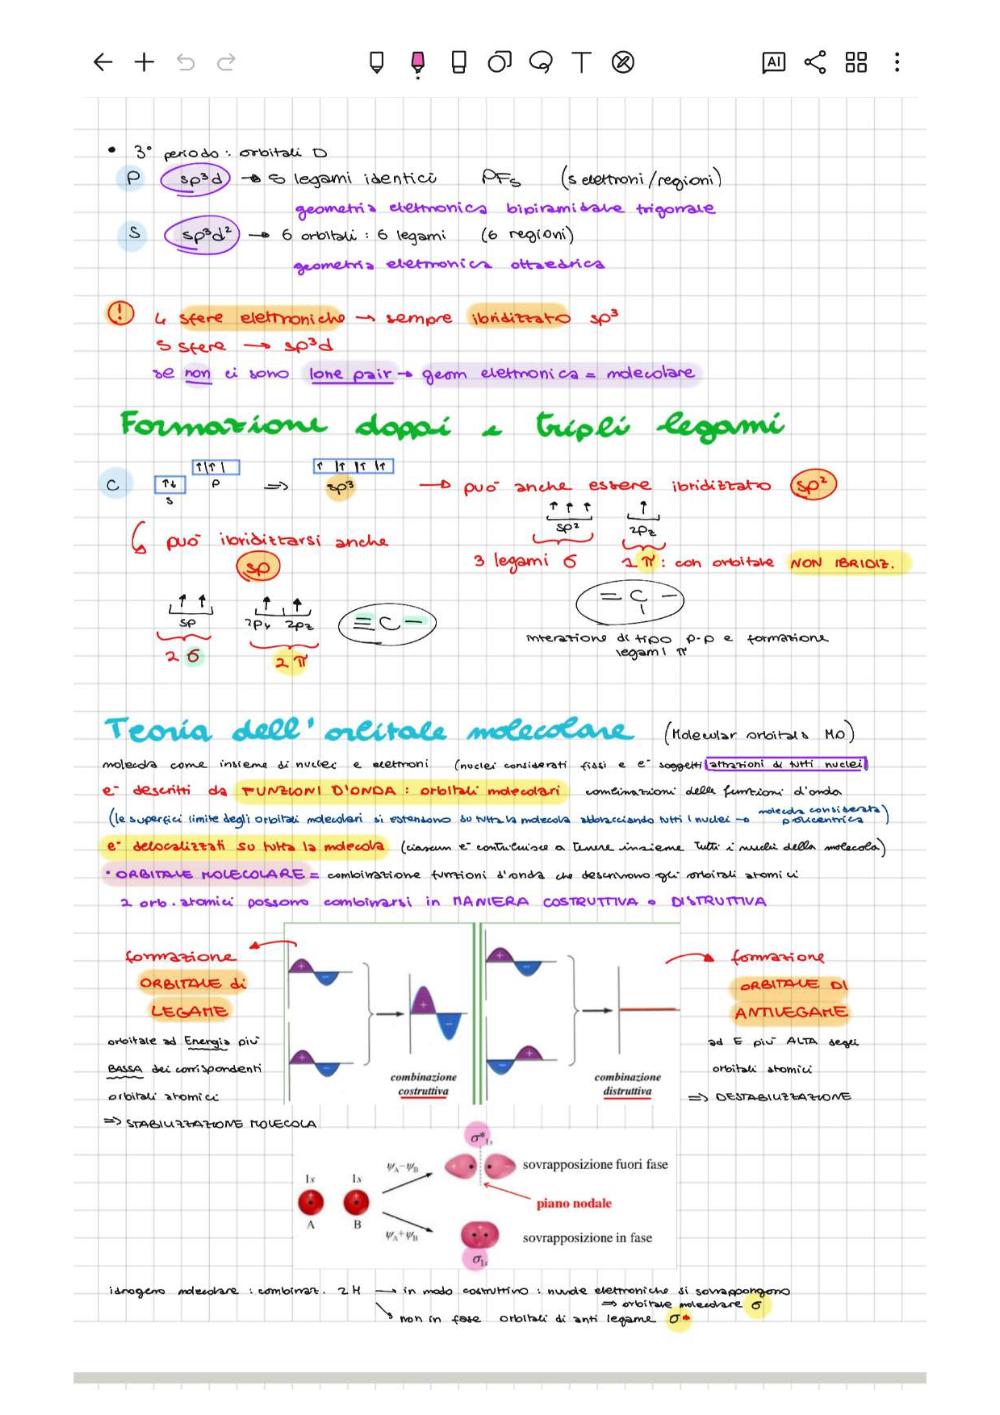 AI
• 3° periodo: orbitali D
P sp³d → 5 legami identici PF₅ (5 elettroni/regioni)
geometria elettronica bipiramidale trigonale
S sp³d² → 6 orbitali: 6 legami (6 regioni)
geometria elettronica ottaedrica
! 4 sfere elettroniche → sempre ibridizzato sp³
5 sfere → sp³d
se non ci sono lone pair → geom elettronica = molecolare
Formazione doppi e tripli legami
C ↑↓ ↑|↑| ⇒ ↑|↑|↑|↑ → può anche essere ibridizzato sp²
s p sp³
↑ ↑ ↑ ↑
sp² 2pz
può ibridizzarsi anche
sp
3 legami σ 1 π: con orbitale NON IBRIDIZ.
↑ ↑ ↑ ↑
sp 2py 2pz ≡C−
=C−
2 σ 2 π
interazione di tipo p-p e formazione
legami π
Teoria dell'orbitale molecolare (Molecular orbitals MO)
molecola come insieme di nuclei e elettroni (nuclei considerati fissi e e⁻ soggetti attrazioni di tutti nuclei
e⁻ descritti da FUNZIONI D'ONDA: orbitali molecolari combinazioni delle funzioni d'onda
(le superfici limite degli orbitali molecolari si estendono su tutta la molecola abbracciando tutti i nuclei → molecola considerata policentrica)
e⁻ delocalizzati su tutta la molecola (ciascun e⁻ contribuisce a tenere insieme tutti i nuclei della molecola)
• ORBITALE MOLECOLARE = combinazione funzioni d'onda che descrivono gli orbitali atomici
2 orb. atomici possono combinarsi in MANIERA COSTRUTTIVA o DISTRUTTIVA
formazione
ORBITALE di
LEGAME
orbitale ad Energia più
BASSA dei corrispondenti
orbitali atomici
⇒ STABILIZZAZIONE MOLECOLA
+ −
+ −
+
−
combinazione
costruttiva
+ −
− +
combinazione
distruttiva
formazione
ORBITALE DI
ANTILEGAME
ad E più ALTA degli
orbitali atomici
⇒ DESTABILIZZAZIONE
σ*₁ₛ
ψA−ψB sovrapposizione fuori fase
1s 1s
piano nodale
A B
ψA+ψB sovrapposizione in fase
σ₁ₛ
idrogeno molecolare: combinaz. 2H → in modo costruttivo: nuvole elettroniche si sovrappongono
⇒ orbitale molecolare σ
↘ non in fase orbitali di anti legame σ*